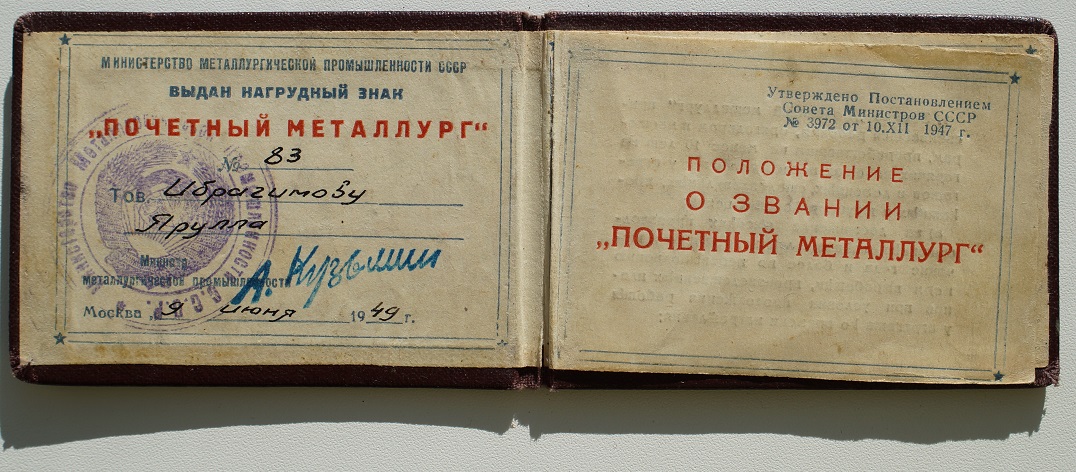 МИНИСТЕРСТВО МЕТАЛЛУРГИЧЕСКОЙ ПРОМЫШЛЕННОСТИ СССР
ВЫДАН НАГРУДНЫЙ ЗНАК
„ПОЧЕТНЫЙ МЕТАЛЛУРГ“
№ 83
Тов. Ибрагимову
Ярулла
Министр
металлургической промышленности
А. Кузьмин
Москва „9„ июня 1949 г.
Утверждено Постановлением
Совета Министров СССР
№ 3972 от 10.XII 1947 г.
ПОЛОЖЕНИЕ
О ЗВАНИИ
„ПОЧЕТНЫЙ МЕТАЛЛУРГ“